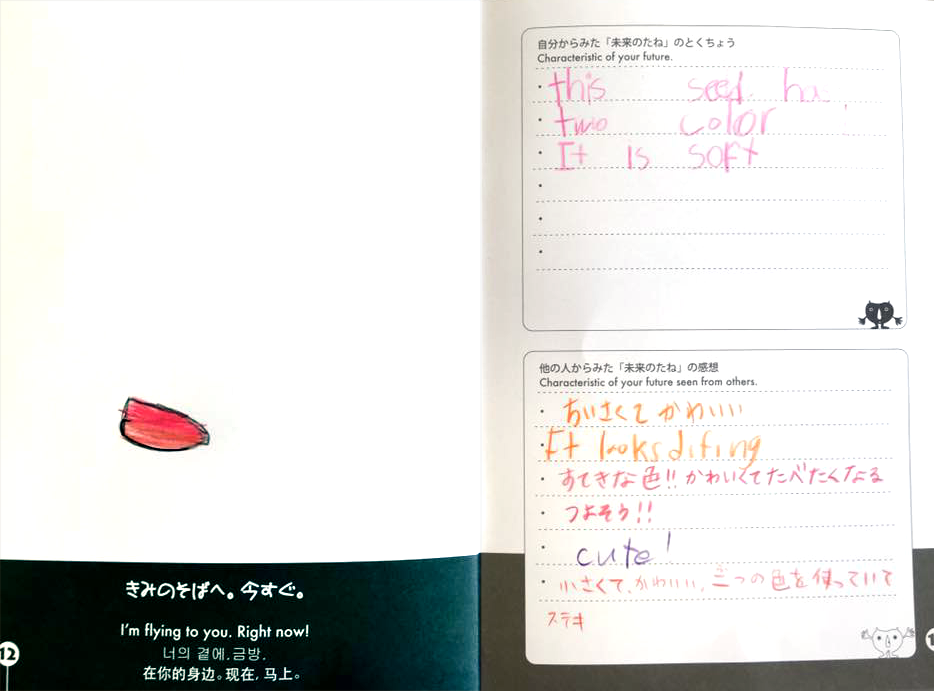 きみのそばへ。今すぐ。
I'm flying to you. Right now!
너의 곁에.금방.
在你的身边。现在，马上。
12
自分からみた「未来のたね」のとくちょう
Characteristic of your future.
・this seed ha
・two color
・It is soft
・
・
・
他の人からみた「未来のたね」の感想
Characteristic of your future seen from others.
・ちいさくて かわいい
・It looks difing
・すてきな色!! かわいくてたべたくなる
・つよそう!!
・cute!
・小さくて、かわいい、三つの色を使っていて
ステキ
1